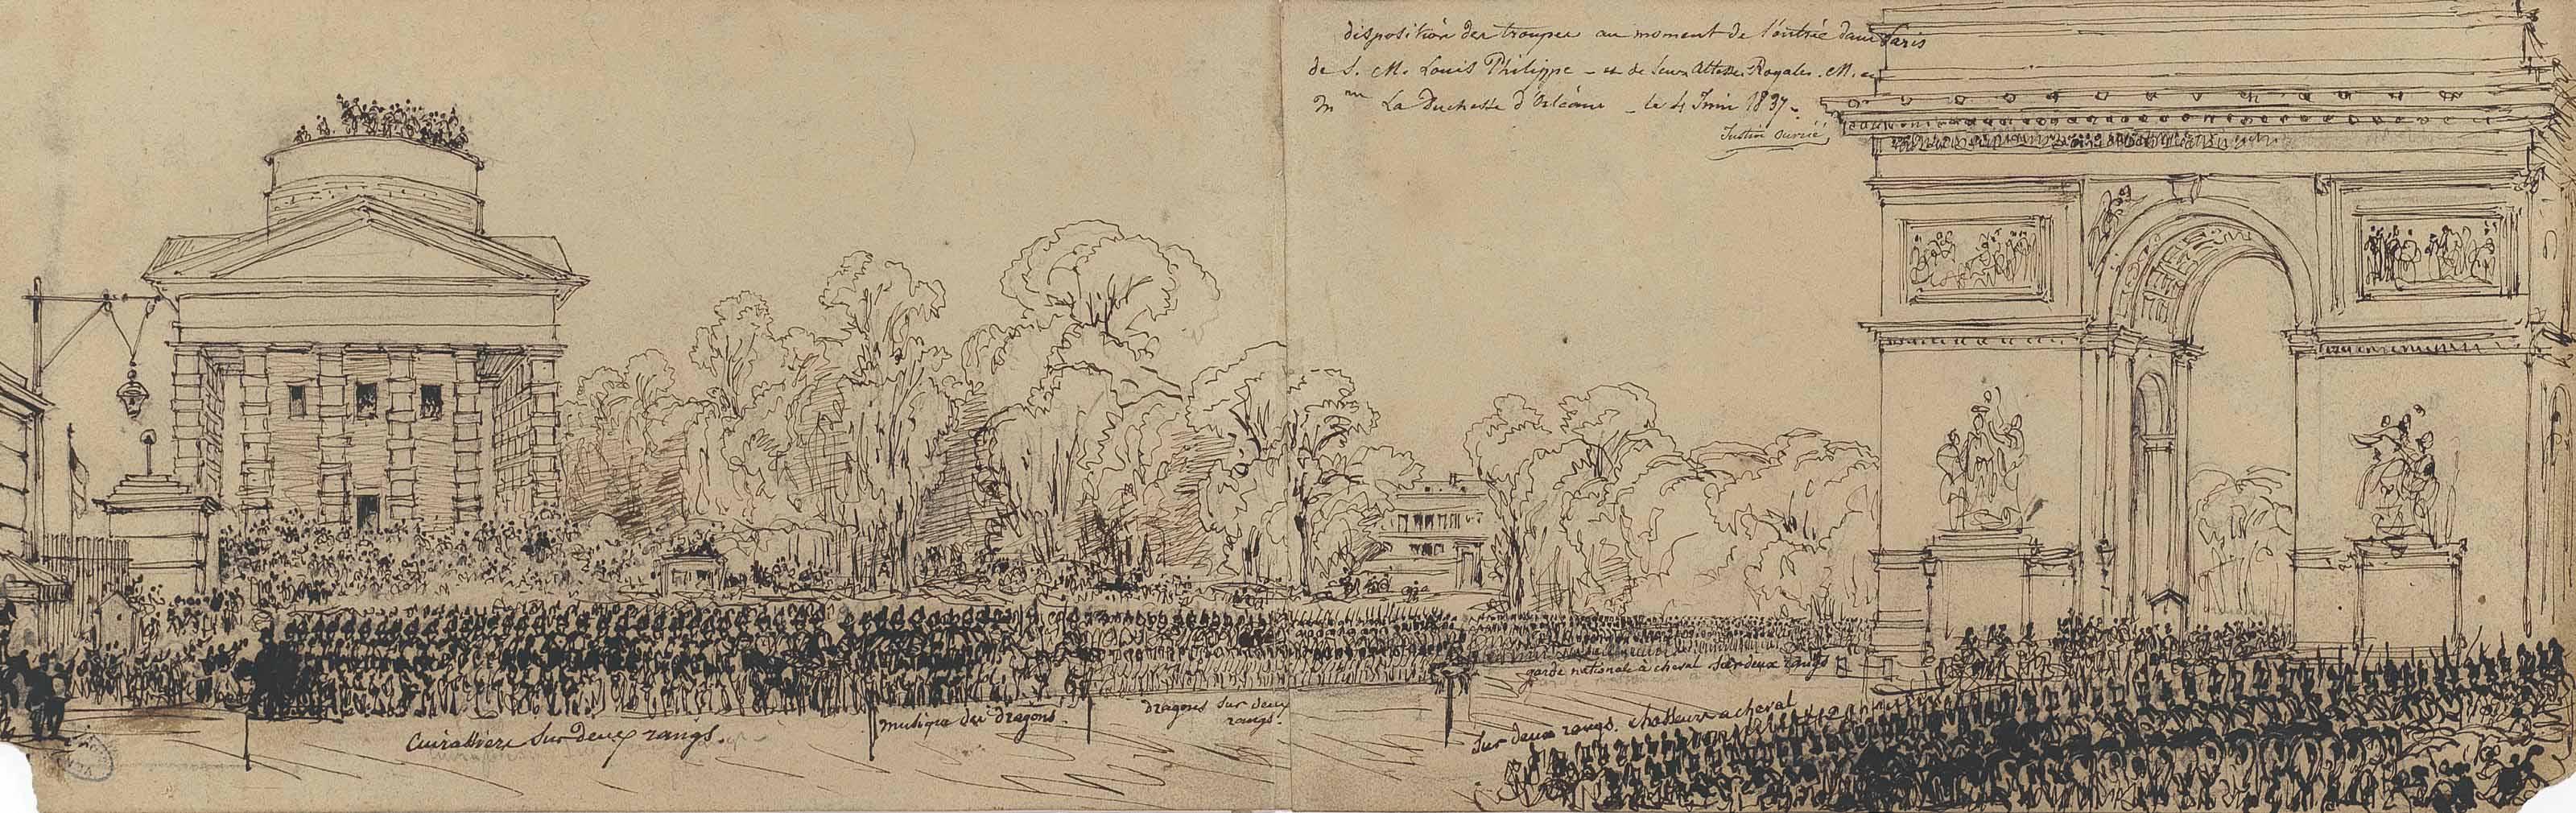 disposition des troupes au moment de l'entrée dans Paris
de S. M. Louis Philippe - et de leurs Altesses Royales. M. et
Mme La Duchesse d'Orléans - le 4 Juin 1837.
Justin Ouvrié
Cuirassiers sur deux rangs.
musique des dragons.
dragons sur deux
rangs.
garde nationale à cheval sur deux rangs
sur deux rangs. chasseurs a cheval